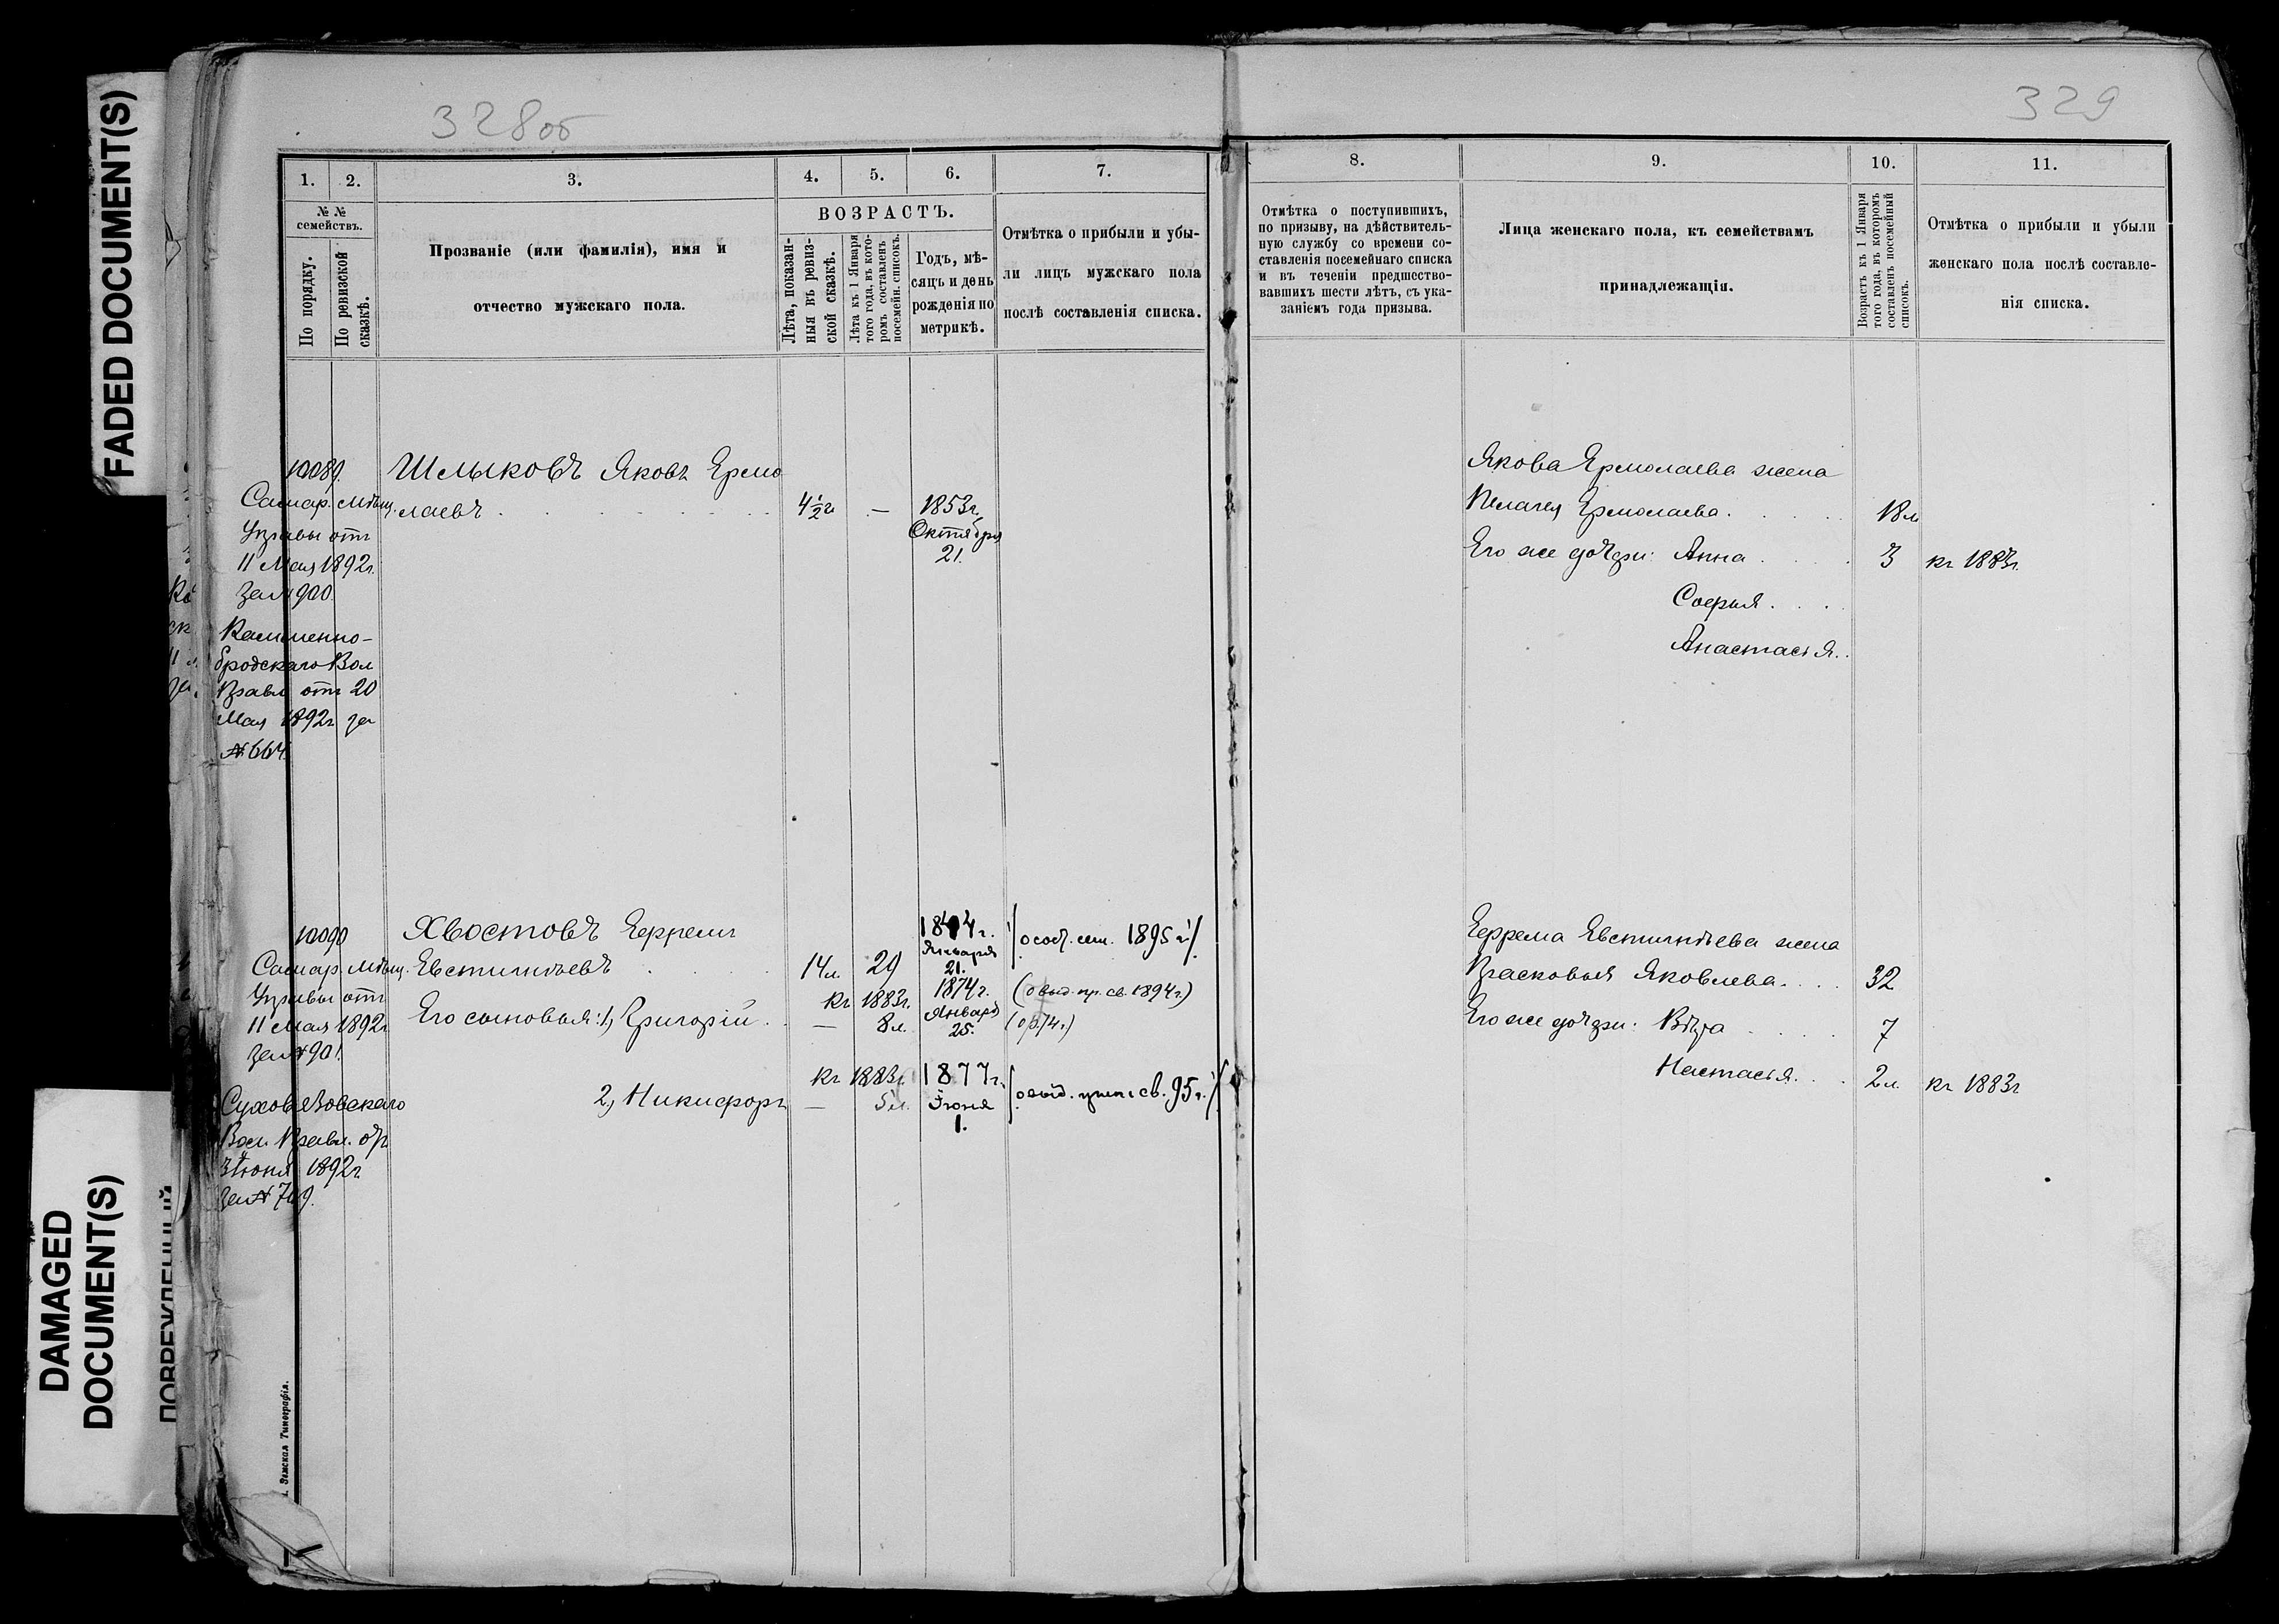 FADED DOCUMENT(S)
DAMAGED
DOCUMENT(S)
328об
1.
2.
3.
4.
5.
6.
7.
№ №
семействъ.
По порядку.
По ревизской
сказкѣ.
Прозваніе (или фамилія), имя и
отчество мужскаго пола.
ВОЗРАСТЪ.
Лѣта, показан-
ныя въ ревиз-
ской сказкѣ.
Лѣта къ 1 Января
того года, въ кото-
ромъ составленъ
посемейн. списокъ.
Годъ, мѣ-
сяцъ и день
рожденія по
метрикѣ.
Отмѣтка о прибыли и убы-
ли лицъ мужскаго пола
послѣ составленія списка.
10089.
Самар. Мѣщ.
Управы отъ
11 Мая 1892г.
за № 900.
Каменно-
бродскаго Вол
Правл отъ 20
Мая 1892г за
№ 664.
Шлыковъ Яковъ Ермо
лаевъ
4½г
—
1853г.
Октября
21.
10090
Самар. Мѣщ.
Управы отъ
11 Мая 1892г
за № 901.
Вол. Правл. отъ
3 Іюня 1892г.
за № 749.
Хвостовъ Ефремъ
Евстигнѣевъ
14л.
29
Января
21.
особ. сем. 1895г.
Его сыновья: 1, Григорій
къ 1883г.
— 8л.
1874г.
Января
25.
(о выд. пр. св. 1894г.)
2, Никифоръ
къ 1883г.
— 5л.
1877г.
Іюня
1.
о выд. прип. св. 95г.
Земская Типографія.
329
8.
9.
10.
11.
Отмѣтка о поступившихъ,
по призыву, на дѣйствитель-
ную службу со времени со-
ставленія посемейнаго списка
и въ теченіи предшество-
вавшихъ шести лѣтъ, съ ука-
заніемъ года призыва.
Лица женскаго пола, къ семействамъ
принадлежащія.
Возрастъ къ 1 Января
того года, въ которомъ
составленъ посемейный
списокъ.
Отмѣтка о прибыли и убыли
женскаго пола послѣ составле-
нія списка.
Якова Ермолаева жена
Пелагея Ермолаева.
18л
Его же дочери: Анна
3
къ 1883г.
Софья.
Анастасья.
Ефрема Евстигнѣева жена
Прасковья Яковлева.
32
Его же дочери: Вѣра
7
Настасья.
2л.
къ 1883г